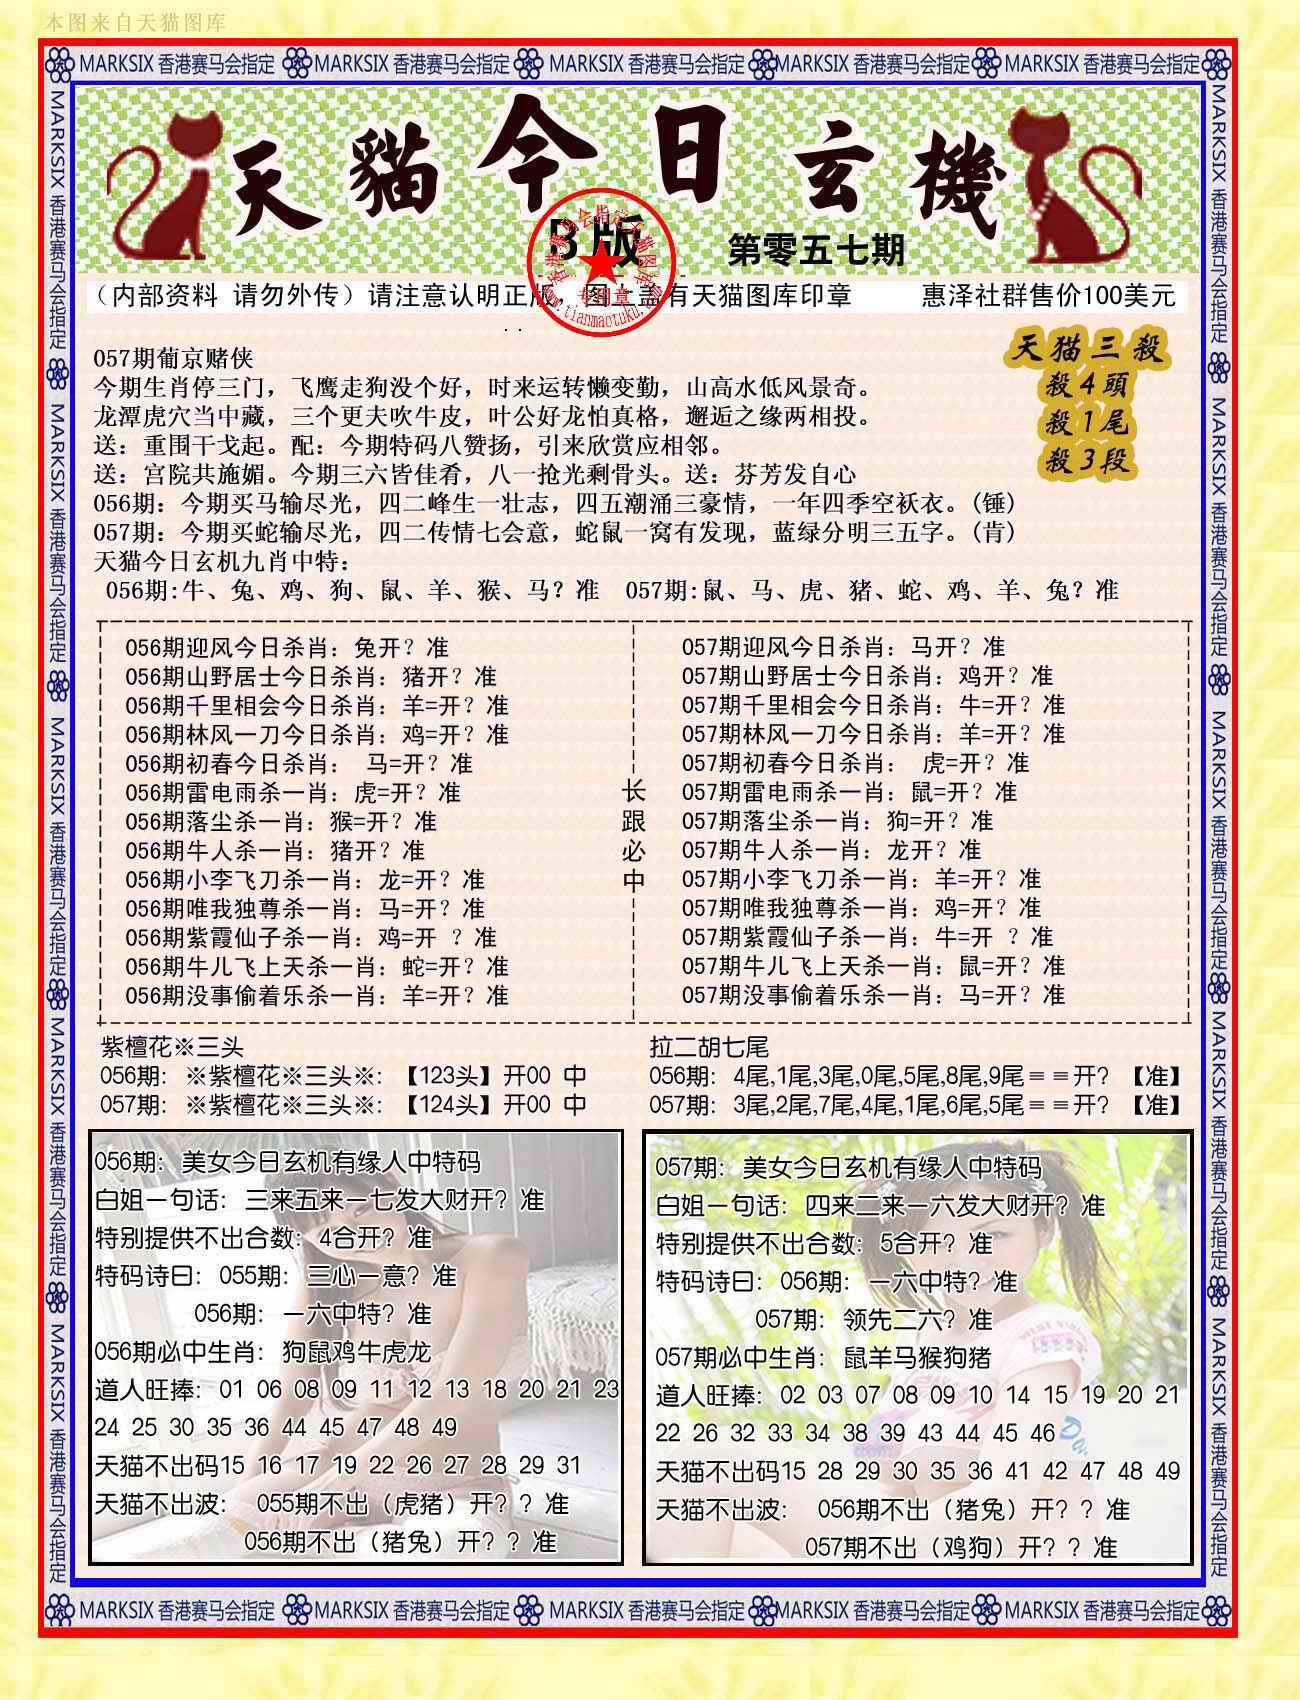 本图来自天猫图库
MARKSIX 香港赛马会指定 MARKSIX 香港赛马会指定 MARKSIX 香港赛马会指定 MARKSIX 香港赛马会指定 MARKSIX 香港赛马会指定
天貓今日玄機
B版
第零五七期
(内部资料 请勿外传)请注意认明正版,图上盖有天猫图库印章 惠泽社群售价100美元
香港赛马会指定天猫图库
专用章
www.tianmaotuku.com
天猫三殺
殺4頭
殺1尾
殺3段
057期葡京赌侠
今期生肖停三门,飞鹰走狗没个好,时来运转懒变勤,山高水低风景奇。
龙潭虎穴当中藏,三个更夫吹牛皮,叶公好龙怕真格,邂逅之缘两相投。
送:重围干戈起。配:今期特码八赞扬,引来欣赏应相邻。
送:宫院共施媚。今期三六皆佳肴,八一抢光剩骨头。送:芬芳发自心
056期:今期买马输尽光,四二峰生一壮志,四五潮涌三豪情,一年四季空袄衣。(锤)
057期:今期买蛇输尽光,四二传情七会意,蛇鼠一窝有发现,蓝绿分明三五字。(肯)
天猫今日玄机九肖中特:
056期:牛、兔、鸡、狗、鼠、羊、猴、马?准 057期:鼠、马、虎、猪、蛇、鸡、羊、兔?准
056期迎风今日杀肖:兔开?准
056期山野居士今日杀肖:猪开?准
056期千里相会今日杀肖:羊=开?准
056期林风一刀今日杀肖:鸡=开?准
056期初春今日杀肖: 马=开?准
056期雷电雨杀一肖:虎=开?准
056期落尘杀一肖:猴=开?准
056期牛人杀一肖:猪开?准
056期小李飞刀杀一肖:龙=开?准
056期唯我独尊杀一肖:马=开?准
056期紫霞仙子杀一肖:鸡=开 ?准
056期牛儿飞上天杀一肖:蛇=开?准
056期没事偷着乐杀一肖:羊=开?准
长跟必中
057期迎风今日杀肖:马开?准
057期山野居士今日杀肖:鸡开?准
057期千里相会今日杀肖:牛=开?准
057期林风一刀今日杀肖:羊=开?准
057期初春今日杀肖: 虎=开?准
057期雷电雨杀一肖:鼠=开?准
057期落尘杀一肖:狗=开?准
057期牛人杀一肖:龙开?准
057期小李飞刀杀一肖:羊=开?准
057期唯我独尊杀一肖:鸡=开?准
057期紫霞仙子杀一肖:牛=开 ?准
057期牛儿飞上天杀一肖:鼠=开?准
057期没事偷着乐杀一肖:马=开?准
紫檀花※三头
056期: ※紫檀花※三头※: 【123头】开00 中
057期: ※紫檀花※三头※: 【124头】开00 中
拉二胡七尾
056期: 4尾,1尾,3尾,0尾,5尾,8尾,9尾==开? 【准】
057期: 3尾,2尾,7尾,4尾,1尾,6尾,5尾==开? 【准】
056期:美女今日玄机有缘人中特码
白姐一句话:三来五来一七发大财开?准
特别提供不出合数:4合开?准
特码诗曰:055期:三心一意?准
056期:一六中特?准
056期必中生肖:狗鼠鸡牛虎龙
道人旺捧:01 06 08 09 11 12 13 18 20 21 23
24 25 30 35 36 44 45 47 48 49
天猫不出码15 16 17 19 22 26 27 28 29 31
天猫不出波: 055期不出(虎猪)开??准
056期不出(猪兔)开??准
057期:美女今日玄机有缘人中特码
白姐一句话:四来二来一六发大财开?准
特别提供不出合数:5合开?准
特码诗曰:056期:一六中特?准
057期:领先二六?准
057期必中生肖:鼠羊马猴狗猪
道人旺捧:02 03 07 08 09 10 14 15 19 20 21
22 26 32 33 34 38 39 43 44 45 46
天猫不出码15 28 29 30 35 36 41 42 47 48 49
天猫不出波: 056期不出(猪兔)开??准
057期不出(鸡狗)开??准
MARKSIX 香港赛马会指定 MARKSIX 香港赛马会指定 MARKSIX 香港赛马会指定 MARKSIX 香港赛马会指定 MARKSIX 香港赛马会指定
MARKSIX 香港赛马会指定 MARKSIX 香港赛马会指定 MARKSIX 香港赛马会指定 MARKSIX 香港赛马会指定 MARKSIX 香港赛马会指定
MARKSIX 香港赛马会指定 MARKSIX 香港赛马会指定 MARKSIX 香港赛马会指定 MARKSIX 香港赛马会指定 MARKSIX 香港赛马会指定